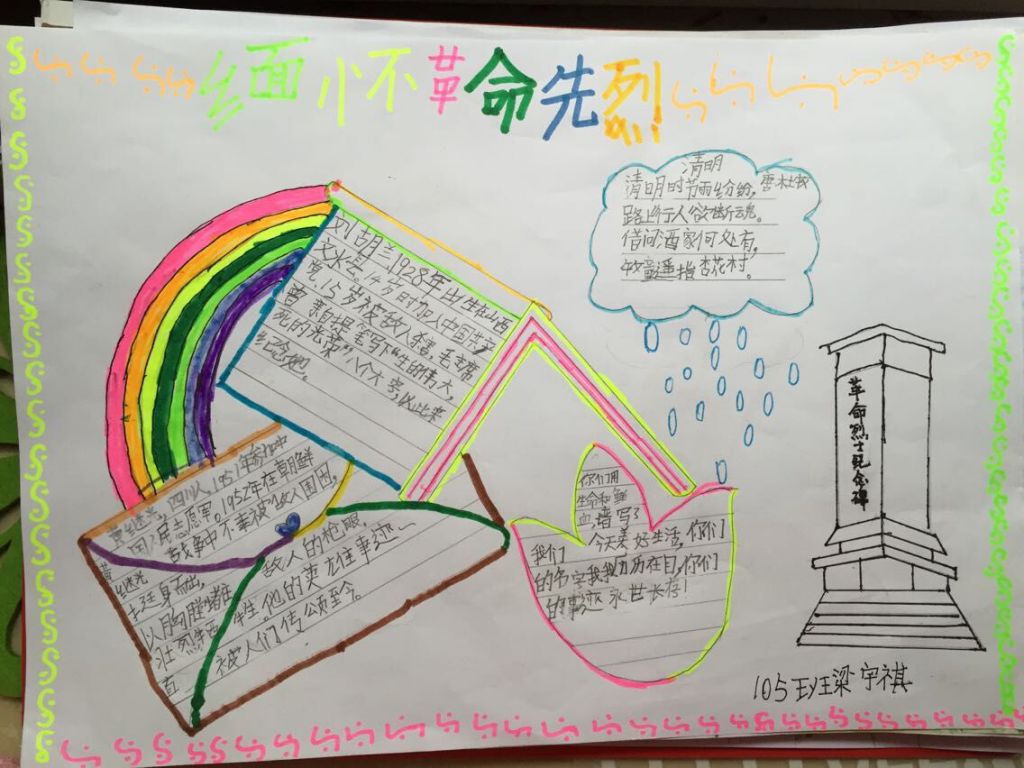 缅怀革命先烈
清明
清明时节雨纷纷,唐杜牧
路上行人欲断魂。
借问酒家何处有,
牧童遥指杏花村。
刘胡兰1928年出生在山西
文水县,14岁时加入中国共产
党,15岁被敌人杀害,毛主席
曾亲自提笔写下“生的伟大,
死的光荣”八个大字,以此来
纪念她。
黄继光,四川人,1951年参加中
国人民志愿军。1952年在朝鲜
战争中不幸被敌人围困,
黄继光
挺身而出,
以胸膛堵住敌人的枪眼,
壮烈牺牲。他的英雄事迹一
直被人们传颂至今。
你们用
生命和鲜
血描写了
我们今天美好生活,你们
的名字我历历在目,你们
的事迹永世长存!
革命烈士纪念碑
105班梁宇祺